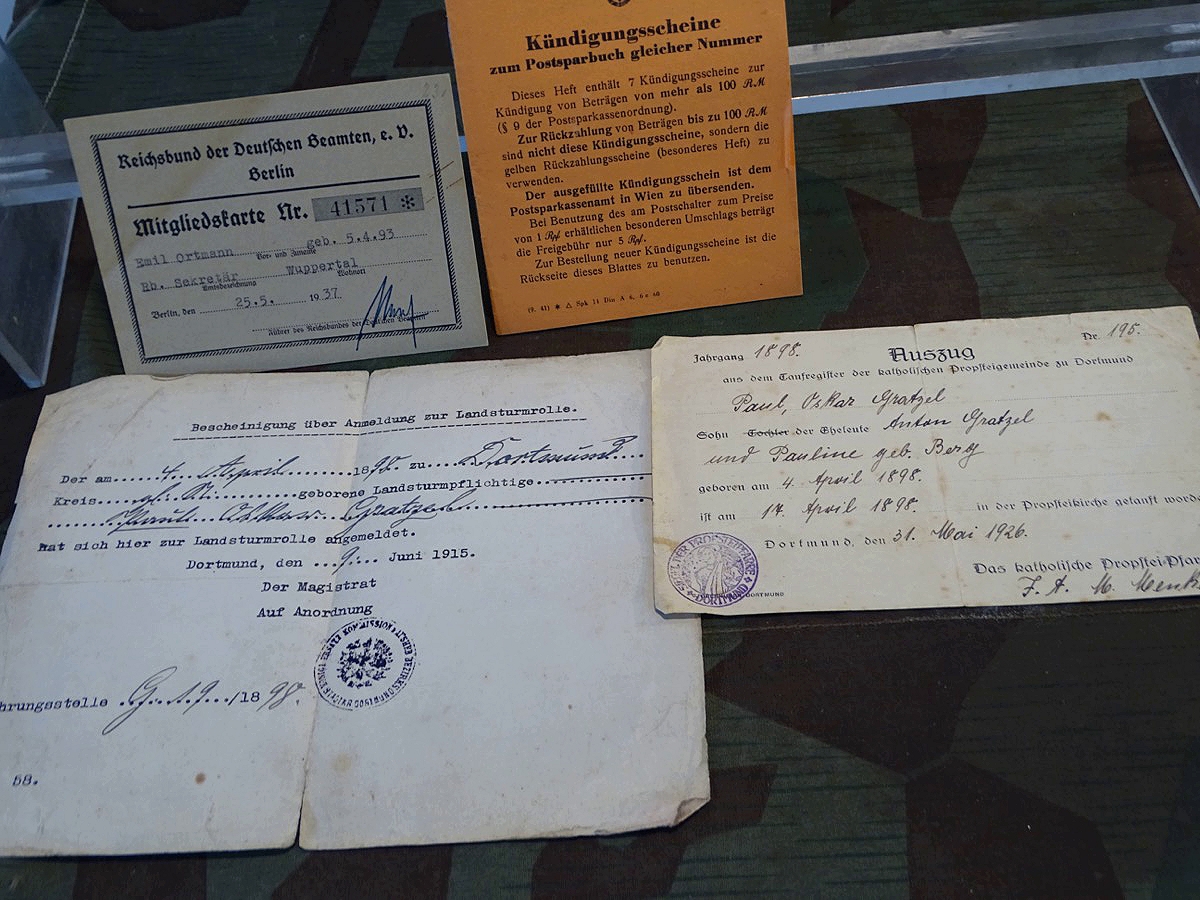 Reichsbund der Deutschen Beamten, e. V.
Berlin
Mitgliedskarte Nr. 41571 *
Emil Ortmann geb. 5.4.93
Vor- und Zuname
Rb. Sekretär Wuppertal
Amtsbezeichnung Wohnort
Berlin, den 25.5. 1937
Führer des Reichsbundes der Deutschen Beamten
Kündigungsscheine
zum Postsparbuch gleicher Nummer
Dieses Heft enthält 7 Kündigungsscheine zur
Kündigung von Beträgen von mehr als 100 RM
(§ 9 der Postsparkassenordnung).
Zur Rückzahlung von Beträgen bis zu 100 RM
sind nicht diese Kündigungsscheine, sondern die
gelben Rückzahlungsscheine (besonderes Heft) zu
verwenden.
Der ausgefüllte Kündigungsschein ist dem
Postsparkassenamt in Wien zu übersenden.
Bei Benutzung des am Postschalter zum Preise
von 1 Rpf erhältlichen besonderen Umschlags beträgt
die Freigebühr nur 5 Rpf.
Zur Bestellung neuer Kündigungsscheine ist die
Rückseite dieses Blattes zu benutzen.
(9. 41) * △ Spk 11 Din A 6, 6 c 60
Bescheinigung über Anmeldung zur Landsturmrolle.
Der am 4. April 1898 zu Dortmund
Kreis geborene Landsturmpflichtige
Paul Oskar Gratzel
hat sich hier zur Landsturmrolle angemeldet.
Dortmund, den 9. Juni 1915.
Der Magistrat
Auf Anordnung
hrungsstelle G. 19 /1898.
58.
Jahrgang 1898. Nr. 195.
Auszug
aus dem Taufregister der katholischen Propsteigemeinde zu Dortmund
Paul, Oskar Gratzel
Sohn Tochter der Eheleute Anton Gratzel
und Pauline geb. Berg
geboren am 4. April 1898.
ist am 17. April 1898. in der Propsteikirche getauft word
Dortmund, den 31. Mai 1926.
Das katholische Propstei-Pfar
DORTMUND